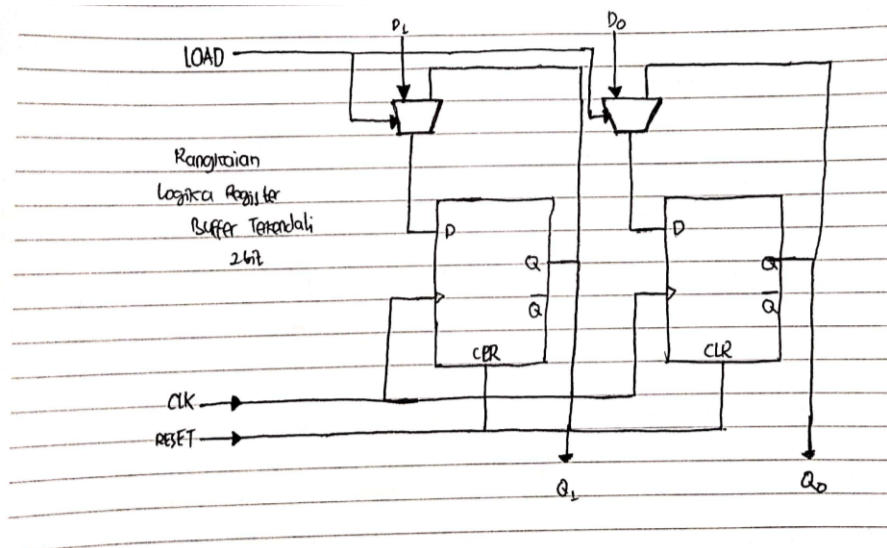 D1 D0
LOAD
Rangkaian
Logika Register
Buffer Terendali
2bit
D D
Q Q
Q Q
CLR CLR
CLK
RESET
Q1 Q0